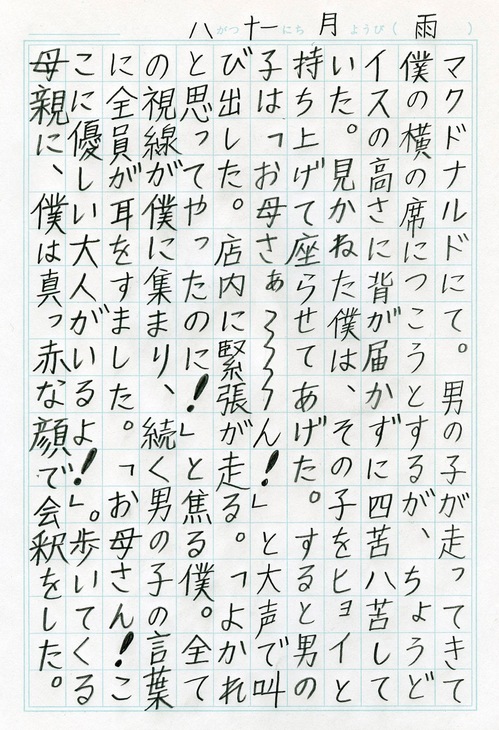 八がつ十一にち 月ようび(雨)
マクドナルドにて。男の子が走ってきて
僕の横の席につこうとするが、ちょうど
イスの高さに背が届かずに四苦八苦して
いた。見かねた僕は、その子をヒョイと
持ち上げて座らせてあげた。すると男の
子は「お母さぁ〜〜〜ん!」と大声で叫
び出した。店内に緊張が走る。「よかれ
と思ってやったのに!」と焦る僕。全て
の視線が僕に集まり、続く男の子の言葉
に全員が耳をすました。「お母さん!こ
こに優しい大人がいるよ!」。歩いてくる
母親に、僕は真っ赤な顔で会釈をした。